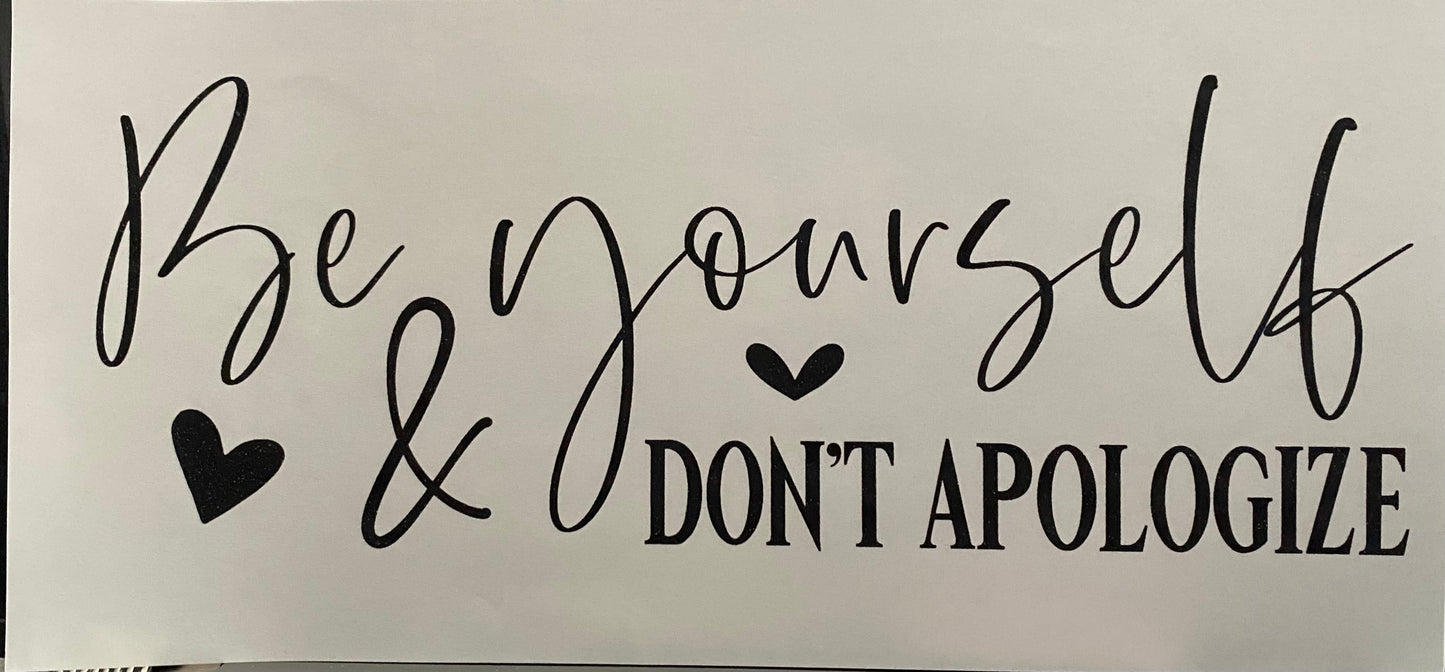 Be yourself
& DON'T APOLOGIZE